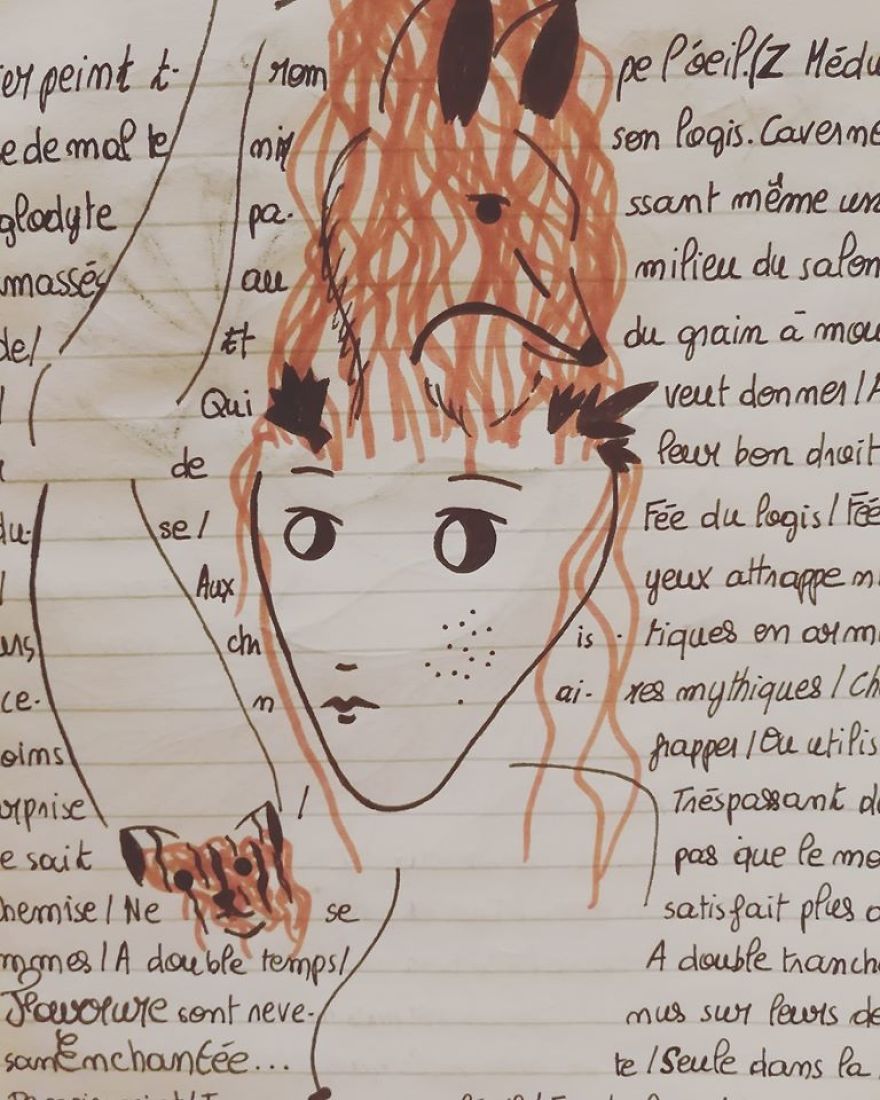 er peint t- rom pe l'oeil.(Z Médu
e de mal te mir son logis. Caverne
glodyte pa- ssant même un
massés au milieu du salon
de/ Et du grain à mou
Qui veut donner/A
de leur bon droit
du- se/ Fée du logis/Fée
Aux yeux attrappe m
urs chr is- tiques en arm
ce- n ai- res mythiques/Ch
oins frapper/Ou utilis
urprise / Trespassant d
e sait pas que le mo
hemise/Ne se satisfait plus
mmes/A double temps/ A double tranch
sont neve- nus sur leurs de
Enchantée... te/Seule dans la